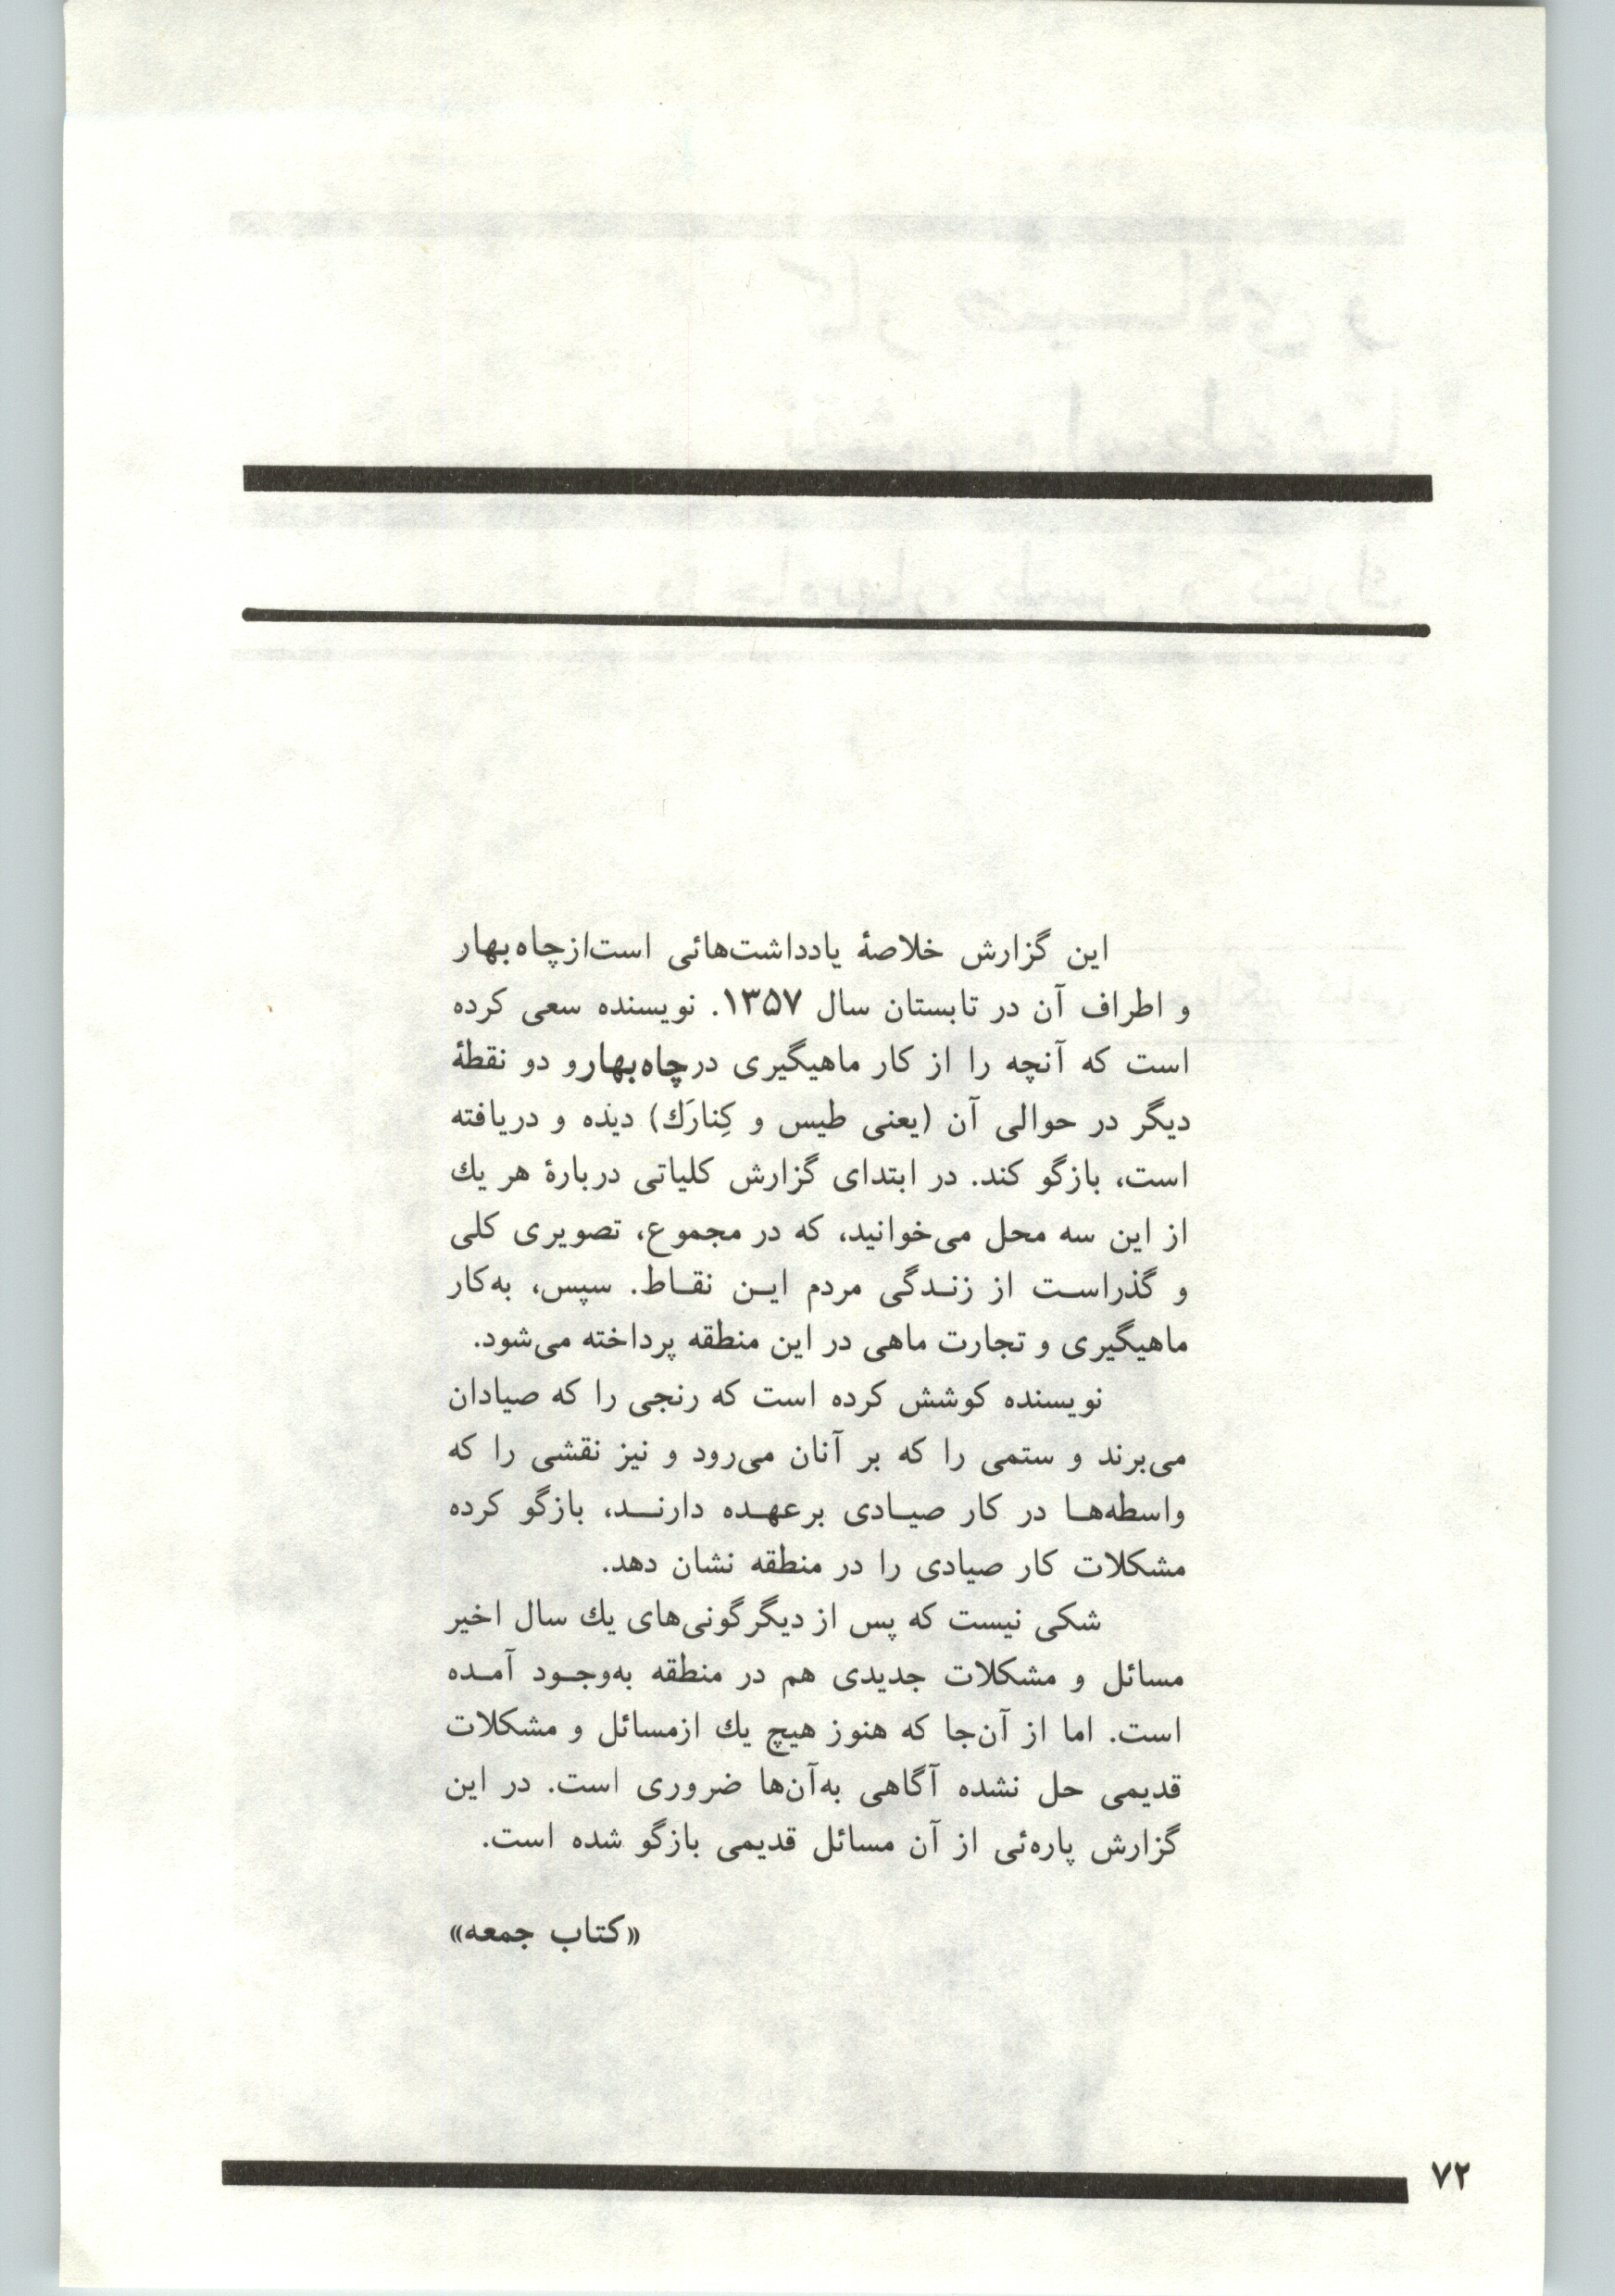 این گزارش خلاصهٔ یادداشت‌هائی است‌از‌چاه‌بهار
و اطراف آن در تابستان سال ۱۳۵۷. نویسنده سعی کرده
است که آنچه را از کار ماهیگیری در‌چاه‌بهار‌و دو نقطهٔ
دیگر در حوالی آن (یعنی طیس و کِنارَك) دیده و دریافته
است، بازگو کند. در ابتدای گزارش کلیاتی دربارهٔ هر یك
از این سه محل می‌خوانید، که در مجموع، تصویری کلی
و گذراسـت از زنـدگی مردم ایـن نقـاط. سپس، به‌کار
ماهیگیری و تجارت ماهی در این منطقه پرداخته می‌شود.
نویسنده کوشش کرده است که رنجی را که صیادان
می‌برند و ستمی را که بر آنان می‌رود و نیز نقشی را که
واسطه‌هـا در کار صیـادی برعهـده دارنـد، بازگو کرده
مشکلات کار صیادی را در منطقه نشان دهد.
شکی نیست که پس از دیگرگونی‌های یك سال اخیر
مسائل و مشکلات جدیدی هم در منطقه به‌وجـود آمـده
است. اما از آن‌جا که هنوز هیچ یك ازمسائل و مشکلات
قدیمی حل نشده آگاهی به‌آن‌ها ضروری است. در این
گزارش پاره‌ئی از آن مسائل قدیمی بازگو شده است.
«کتاب جمعه»
۷۲